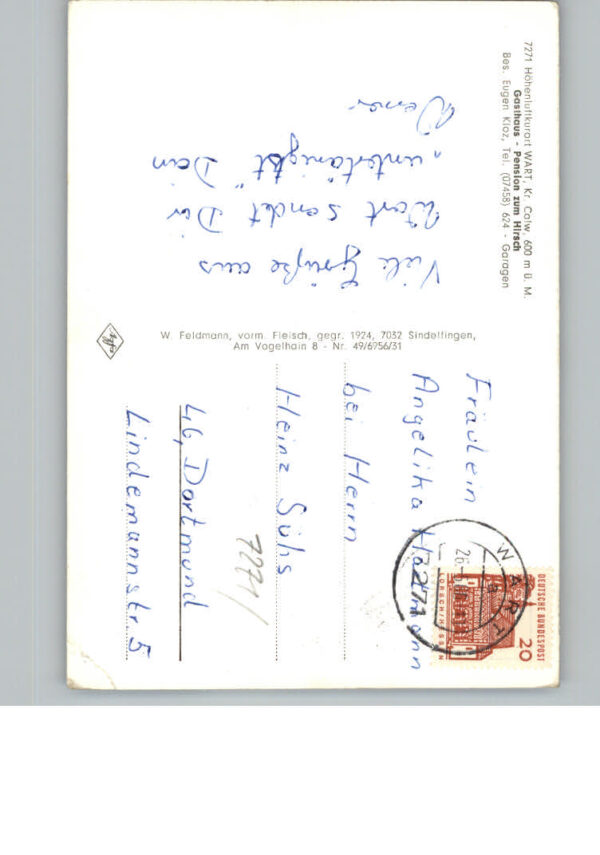 7271 Höhenluftkurort WART, Kr. Calw, 600 m ü. M.
Gasthaus - Pension zum Hirsch
Bes. Eugen Kloz, Tel. (07458) 624 - Garagen
Viele Grüße aus
Wart sendet Dir
„untertänigst" Dein
W. Feldmann, vorm. Fleisch, gegr. 1924, 7032 Sindelfingen,
Am Vogelhain 8 - Nr. 49/6956/31
Agfa
Fräulein
Angelika
bei Herrn
Heinz Sühs
46, Dortmund
Lindemannstr. 5
7271/
WART
7271
DEUTSCHE BUNDESPOST
20
LORSCH/HESSEN